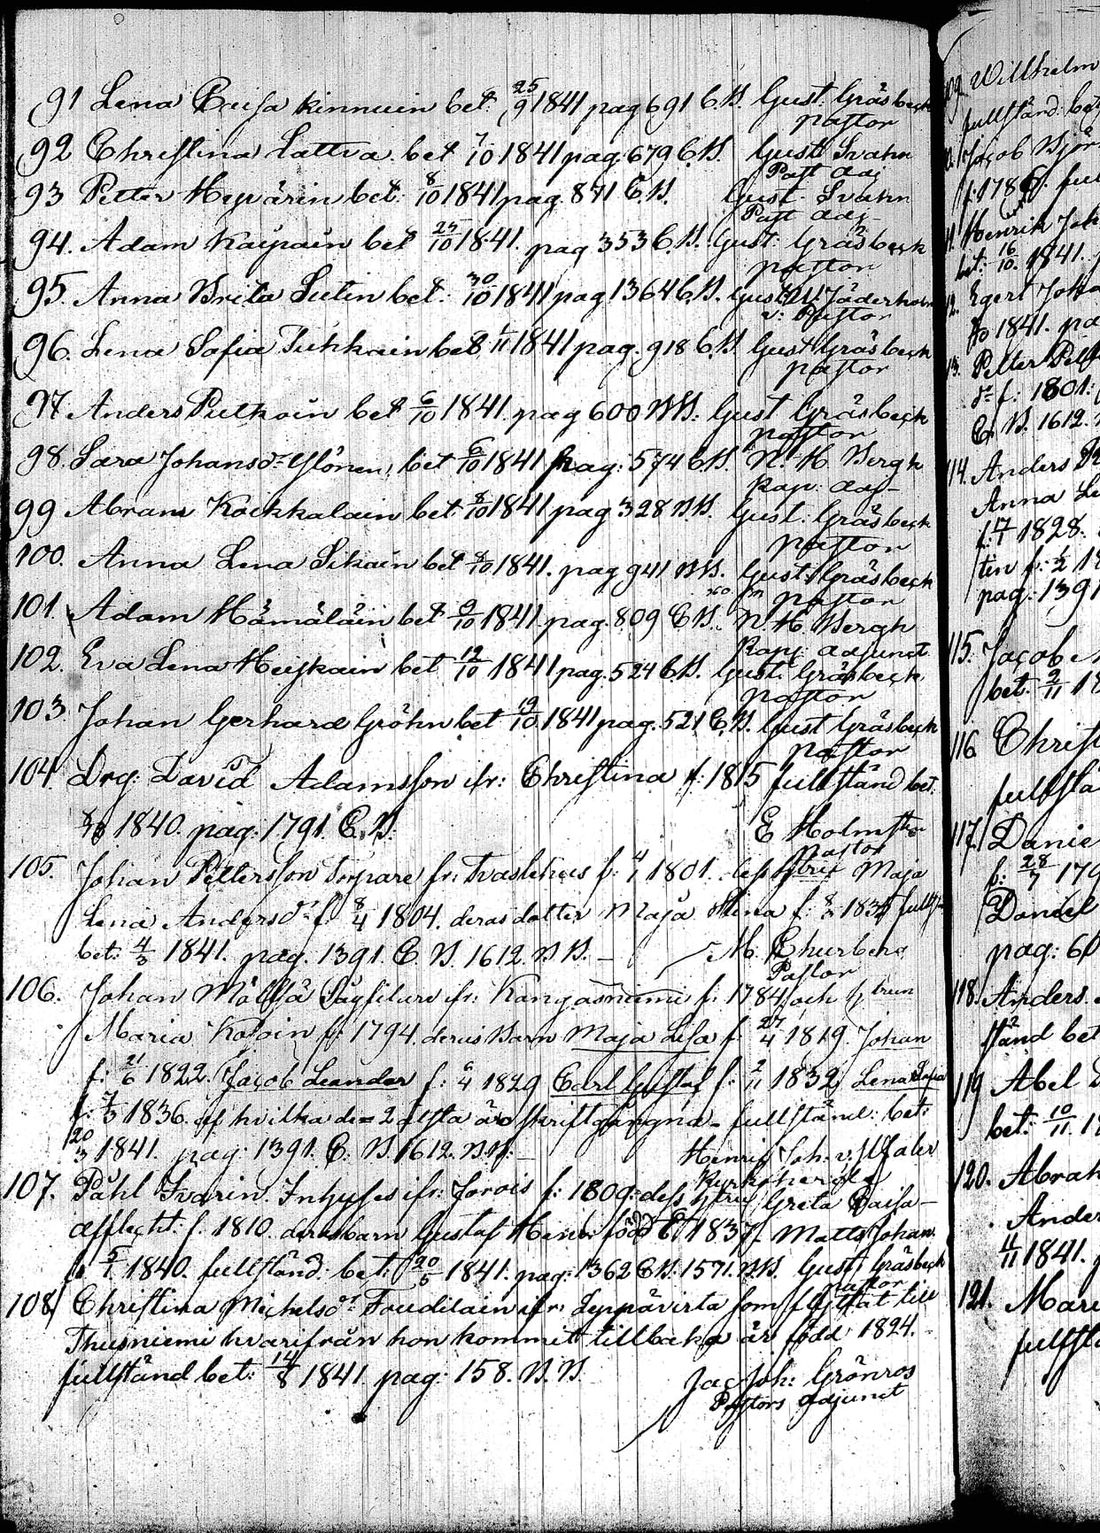 91 Lena Caisa Kinnuin bet: 25/9 1841 pag 691 C.B. Gust: Gråsbeck
pastor
92 Christina Lattva bet 7/10 1841 pag 679 C.B. Gust: Svahn
Past adj
93 Petter Heyvärin bet: 8/10 1841 pag. 871 C.B. Gust. Svahn
Past adj
94. Adam Kaipain bet 25/10 1841. pag 353 C.B. Gust: Gråsbeck
pastor
95. Anna Brita Lutin bet: 30/10 1841 pag 1364 C.B. Gust Jäderholm
v: Pastor
96. Lena Sofia Tuhkain bet 1841 pag. 918 C.B. Gust Gråsbeck
pastor
97. Anders Pulkain bet 6/10 1841. pag 600 B.B. Gust Gråsbeck
pastor
98. Sara Johansdr Ylönen, bet 6/10 1841 pag: 574 C.B. N. H. Bergh
Kap: adj
99 Abram Kockkalain bet 8/10 1841 pag 328 B.B. Gust: Gråsbeck
pastor
100. Anna Lena Sikain bet 8/10 1841. pag 941 B.B. Gust: Gråsbeck
pastor
101. Adam Hämäläin bet 9/10 1841 pag. 809 C.B. N. H. Bergh
Kapj: adjunct
102. Eva Lena Heiskain bet 12/10 1841 pag. 524 C.B. Gust: Gråsbeck
pastor
103 Johan Gerhard Gröhn bet 19/10 1841 pag. 521 C.B. Gust Gråsbeck
pastor
104 Drg: David Adamsson ifr: Christina f: 1815 fullständ bet.
1840. pag: 1791. C.B. E Holmst
Pastor
105. Johan Pettersson Torpare fr: f: 4/1 1801. dess hstru Maja
Lena Andersdr f: 8/4 1804. deras dotter Maja Stina f:
bet: 4/3 1841. pag. 1391. C B. 1612. B B. M. Churberg
Pastor
106. Johan ifr: Kangasniemi f: 1784 och hstrun
Maria f: 1794. deras barn Maja Lisa f: 27/4 1819. Johan
f: 21/6 1822. Jacob Leander f: 6/4 1829 Carl Gustaf f: 2/11 1832 Lena
1836. af hvilka de 2 äro skriftgångna. fullständ: bet:
20/3 1841. pag: 1391. C. B. 1612. B B. Henrik Joh: v:
Kyrkoherde
107. Påhl Svarin. Inhyses ifr: Jorois f: 1809. dess hstru Greta Caisa
f: 1810. deras barn Gustaf född 1837. Matts Johan
1840. fullständ: bet: 20/5 1841. pag: 1362 C B. 1571. B B. Gust: Gråsbeck
pastor
108 Christina Michelsdr ifr: Leppävirta som flyttat till
Thusniemi hvarifrån hon kommit tillbaka är född 1824.
fullständ bet: 14/8 1841 pag: 158. B. B.
Jac Joh: Grönros
Pastors adjunct
Willhelm
fullständ: bet
Jacob Björ
f: 1786. ful
Henrik Joh
bet: 16/10. 1841.
Egert Joha
1841. pa
Petter
f: 1801.
C. B. 1612.
114. Anders
Anna Le
1828.
tin f:
pag: 1391
115. Jacob
bet: 2/11 18
116 Christ
fullstä
117. Danie
f: 28/7 179
Daniel
pag: 60
118. Anders.
ständ bet
119 Abel
bet: 10/11. 1
120. Abrah
Ander
1841.
121. Mari
fullstä